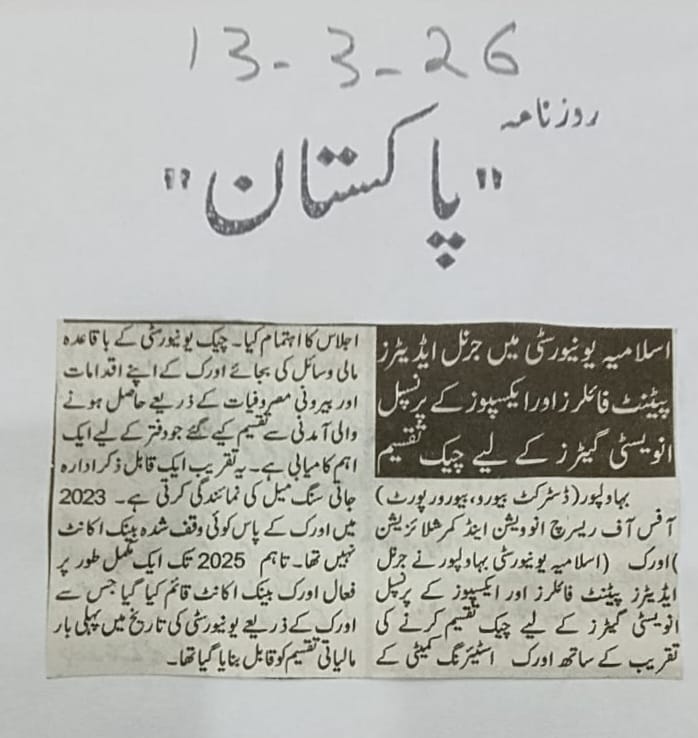 13-3-26
روزنامہ
"پاکستان"
اسلامیہ یونیورسٹی میں جرنل ایڈیٹرز
پیٹنٹ فائلرز اور ایکسپوز کے پرنسپل
انویسٹی گیٹرز کے لیے چیک تقسیم
بہاولپور(ڈسٹرکٹ بیورو،بیورورپورٹ)
آفس آف ریسرچ انوویشن اینڈ کمرشلائزیشن
)اورک (اسلامیہ یونیورسٹی بہاولپور نے جرنل
ایڈیٹرز پیٹنٹ فائلرز اور ایکسپوز کے پرنسپل
انویسٹی گیٹرز کے لیے چیک تقسیم کرنے کی
تقریب کے ساتھ اورک اسٹیئرنگ کمیٹی کے
اجلاس کا اہتمام کیا۔ چیک یونیورسٹی کے باقاعدہ
مالی وسائل کی بجائے اورک کے اپنے اقدامات
اور بیرونی مصروفیات کے ذریعے حاصل ہونے
والی آمدنی سے تقسیم کیے گئے جو دفتر کے لیے ایک
اہم کامیابی ہے۔ یہ تقریب ایک قابل ذکر ادارہ
جاتی سنگ میل کی نمائندگی کرتی ہے۔ 2023
میں اورک کے پاس کوئی وقف شدہ بینک اکانٹ
نہیں تھا۔ تاہم 2025 تک ایک مکمل طور پر
فعال اورک بینک اکانٹ قائم کیا گیا جس سے
اورک کے ذریعے یونیورسٹی کی تاریخ میں پہلی بار
مالیاتی تقسیم کو قابل بنایا گیا تھا۔